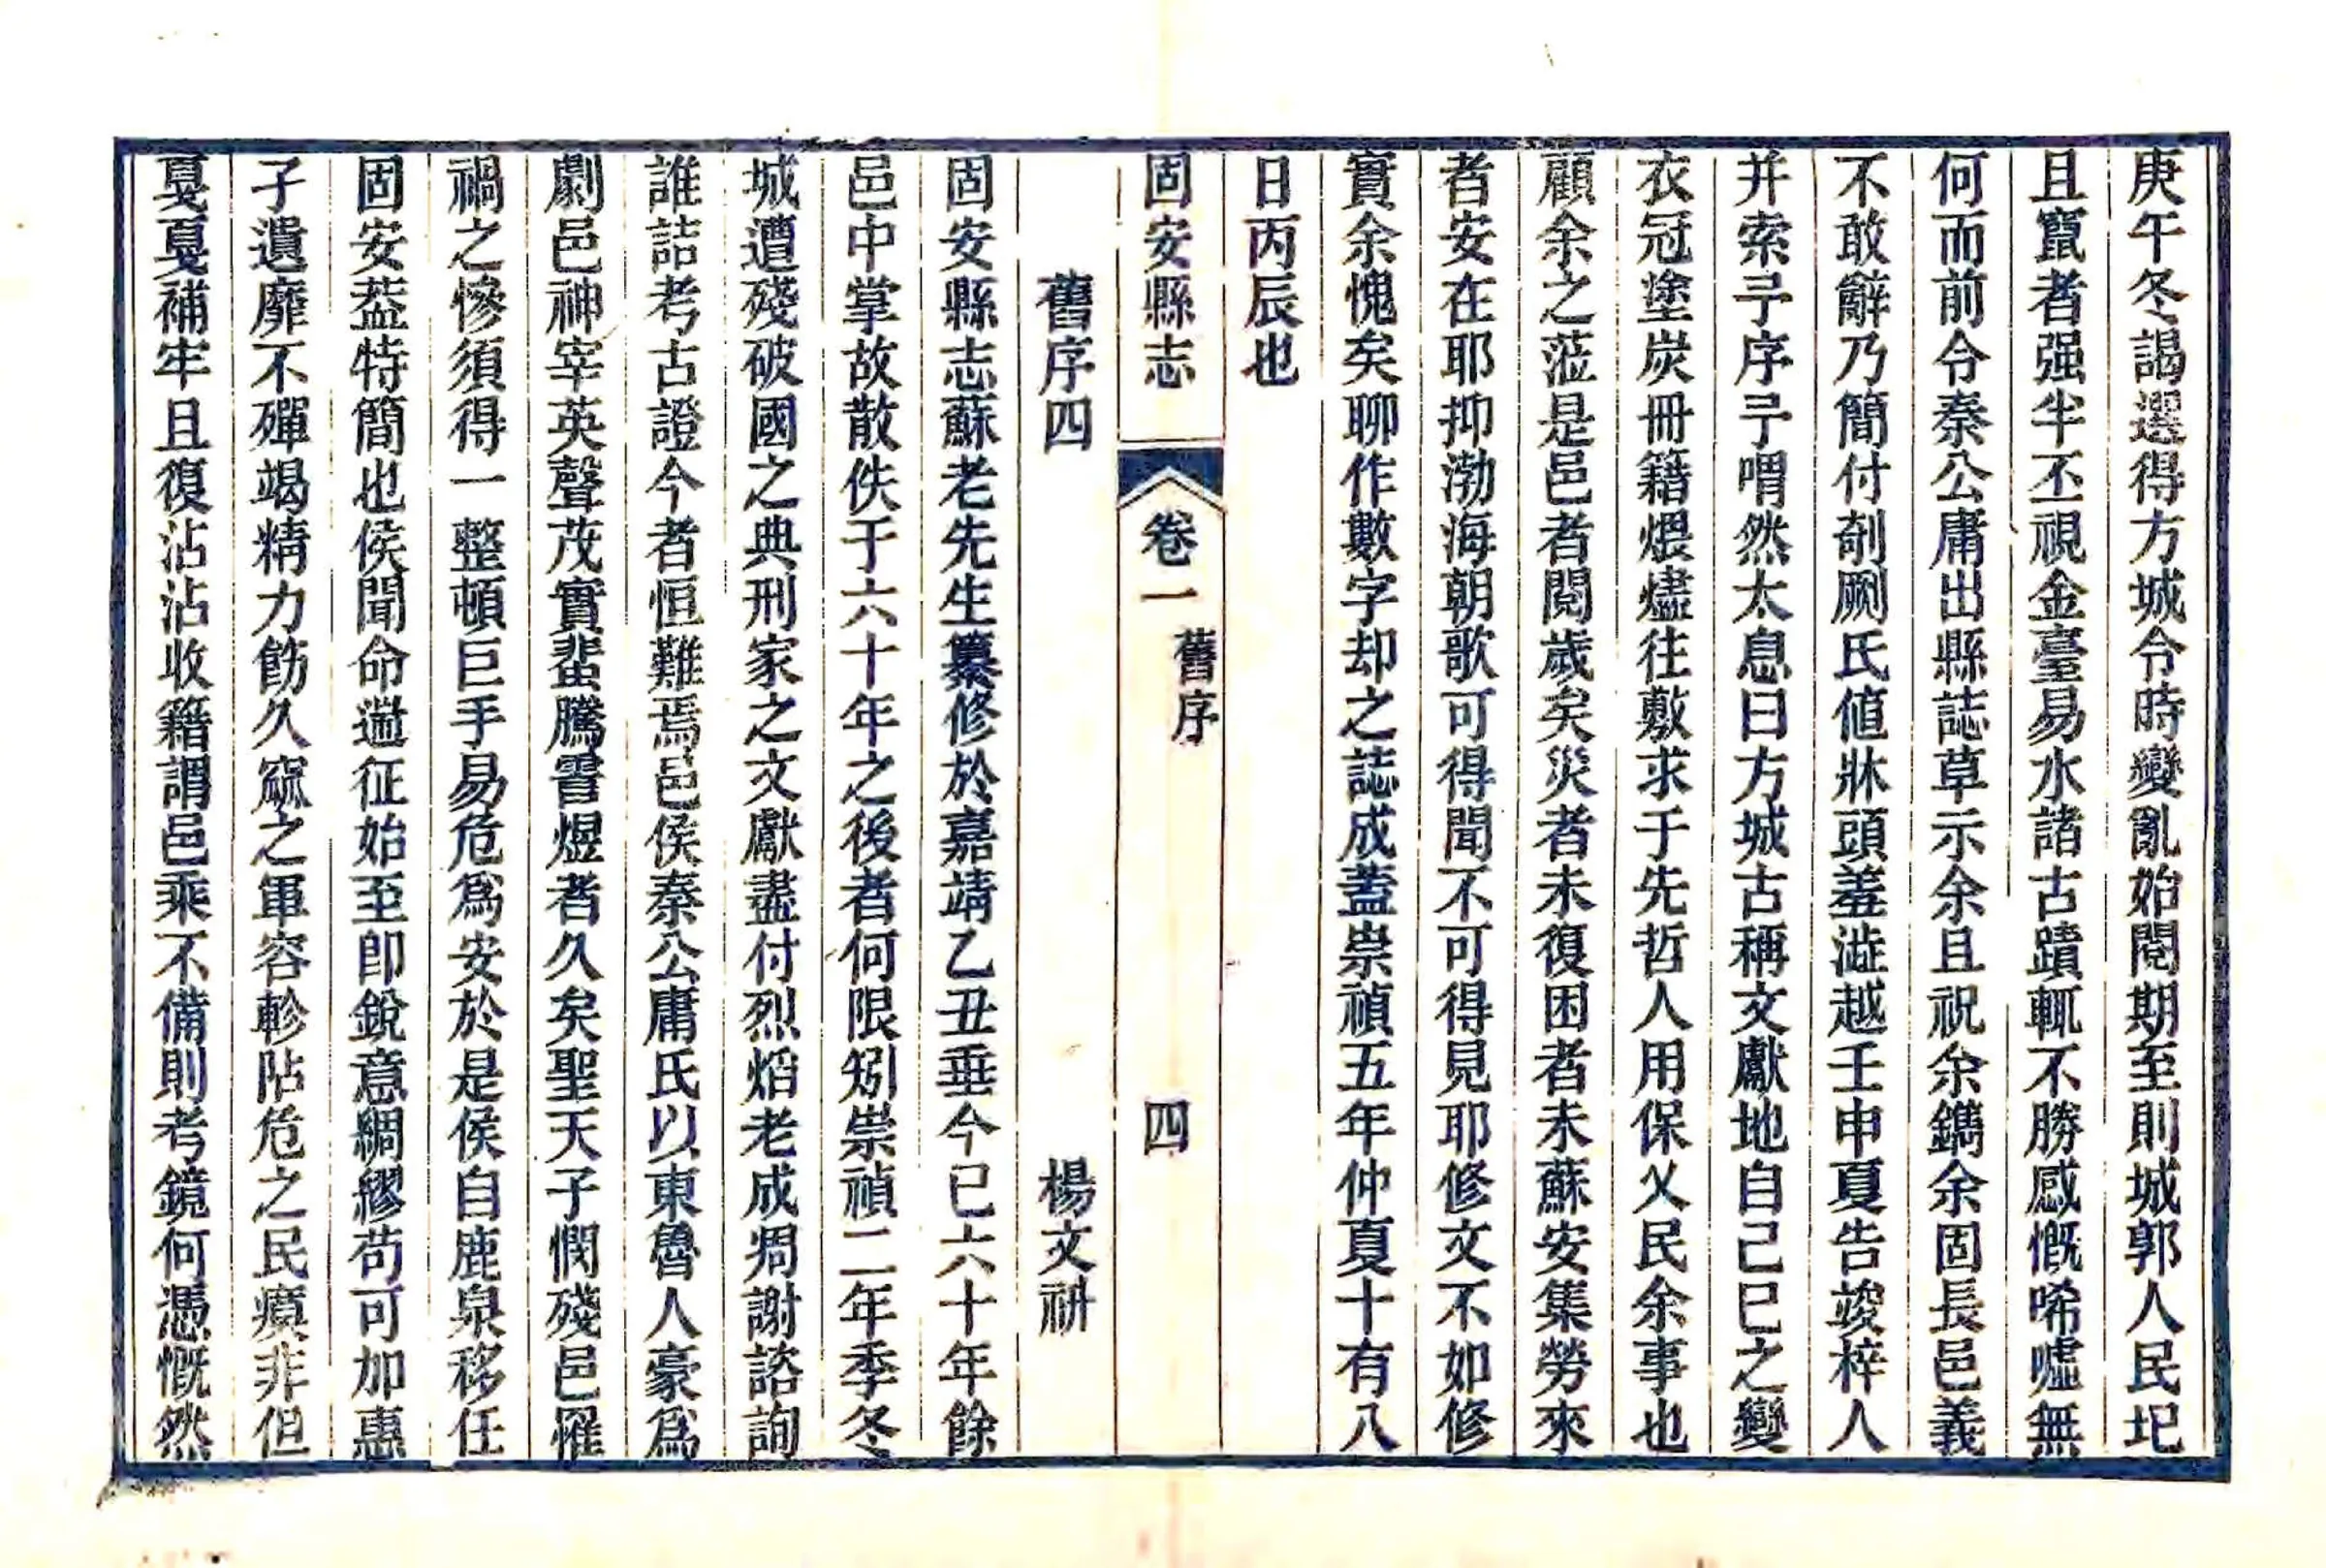 庚午冬謁選得方城令時變亂始閱期至則城郭人民圮
且竄者强半丕視金臺易水諸古蹟輒不勝感慨唏噓無
何而前令秦公庸出縣誌草示余且祝余鐫余固長邑義
不敢辭乃簡付剞劂氏値牀頭羞澁越壬申夏告竣梓人
并索予序予喟然太息曰方城古稱文獻地自己巳之變
衣冠塗炭冊籍煨燼往敷求于先哲人用保乂民余事也
顧余之蒞是邑者閱歲矣災者未復困者未蘇安集勞來
者安在耶抑渤海朝歌可得聞不可得見耶修文不如修
實余愧矣聊作數字却之誌成蓋崇禎五年仲夏十有八
日丙辰也
固安縣志
卷一
舊序
四
舊序四
楊文
固安縣志蘇老先生纂修於嘉靖乙丑垂今已六十年餘
邑中掌故散佚于六十年之後者何限矧崇禎二年季冬
城遭殘破國之典刑家之文獻盡付烈焰老成凋謝諮詢
誰詰考古證今者恒難焉邑侯秦公庸氏以東魯人豪爲
劇邑神宰英聲茂實蜚騰霅煜者久矣聖天子憫殘邑罹
禍之慘須得一整頓巨手易危爲安於是侯自鹿泉移任
固安葢特簡也侯聞命遄征始至卽銳意綢繆苟可加惠
孑遺靡不殫竭精力飭久窳之軍容軫阽危之民瘼非但
戛戛補牢且復沾沾收籍謂邑乘不備則考鏡何憑慨然